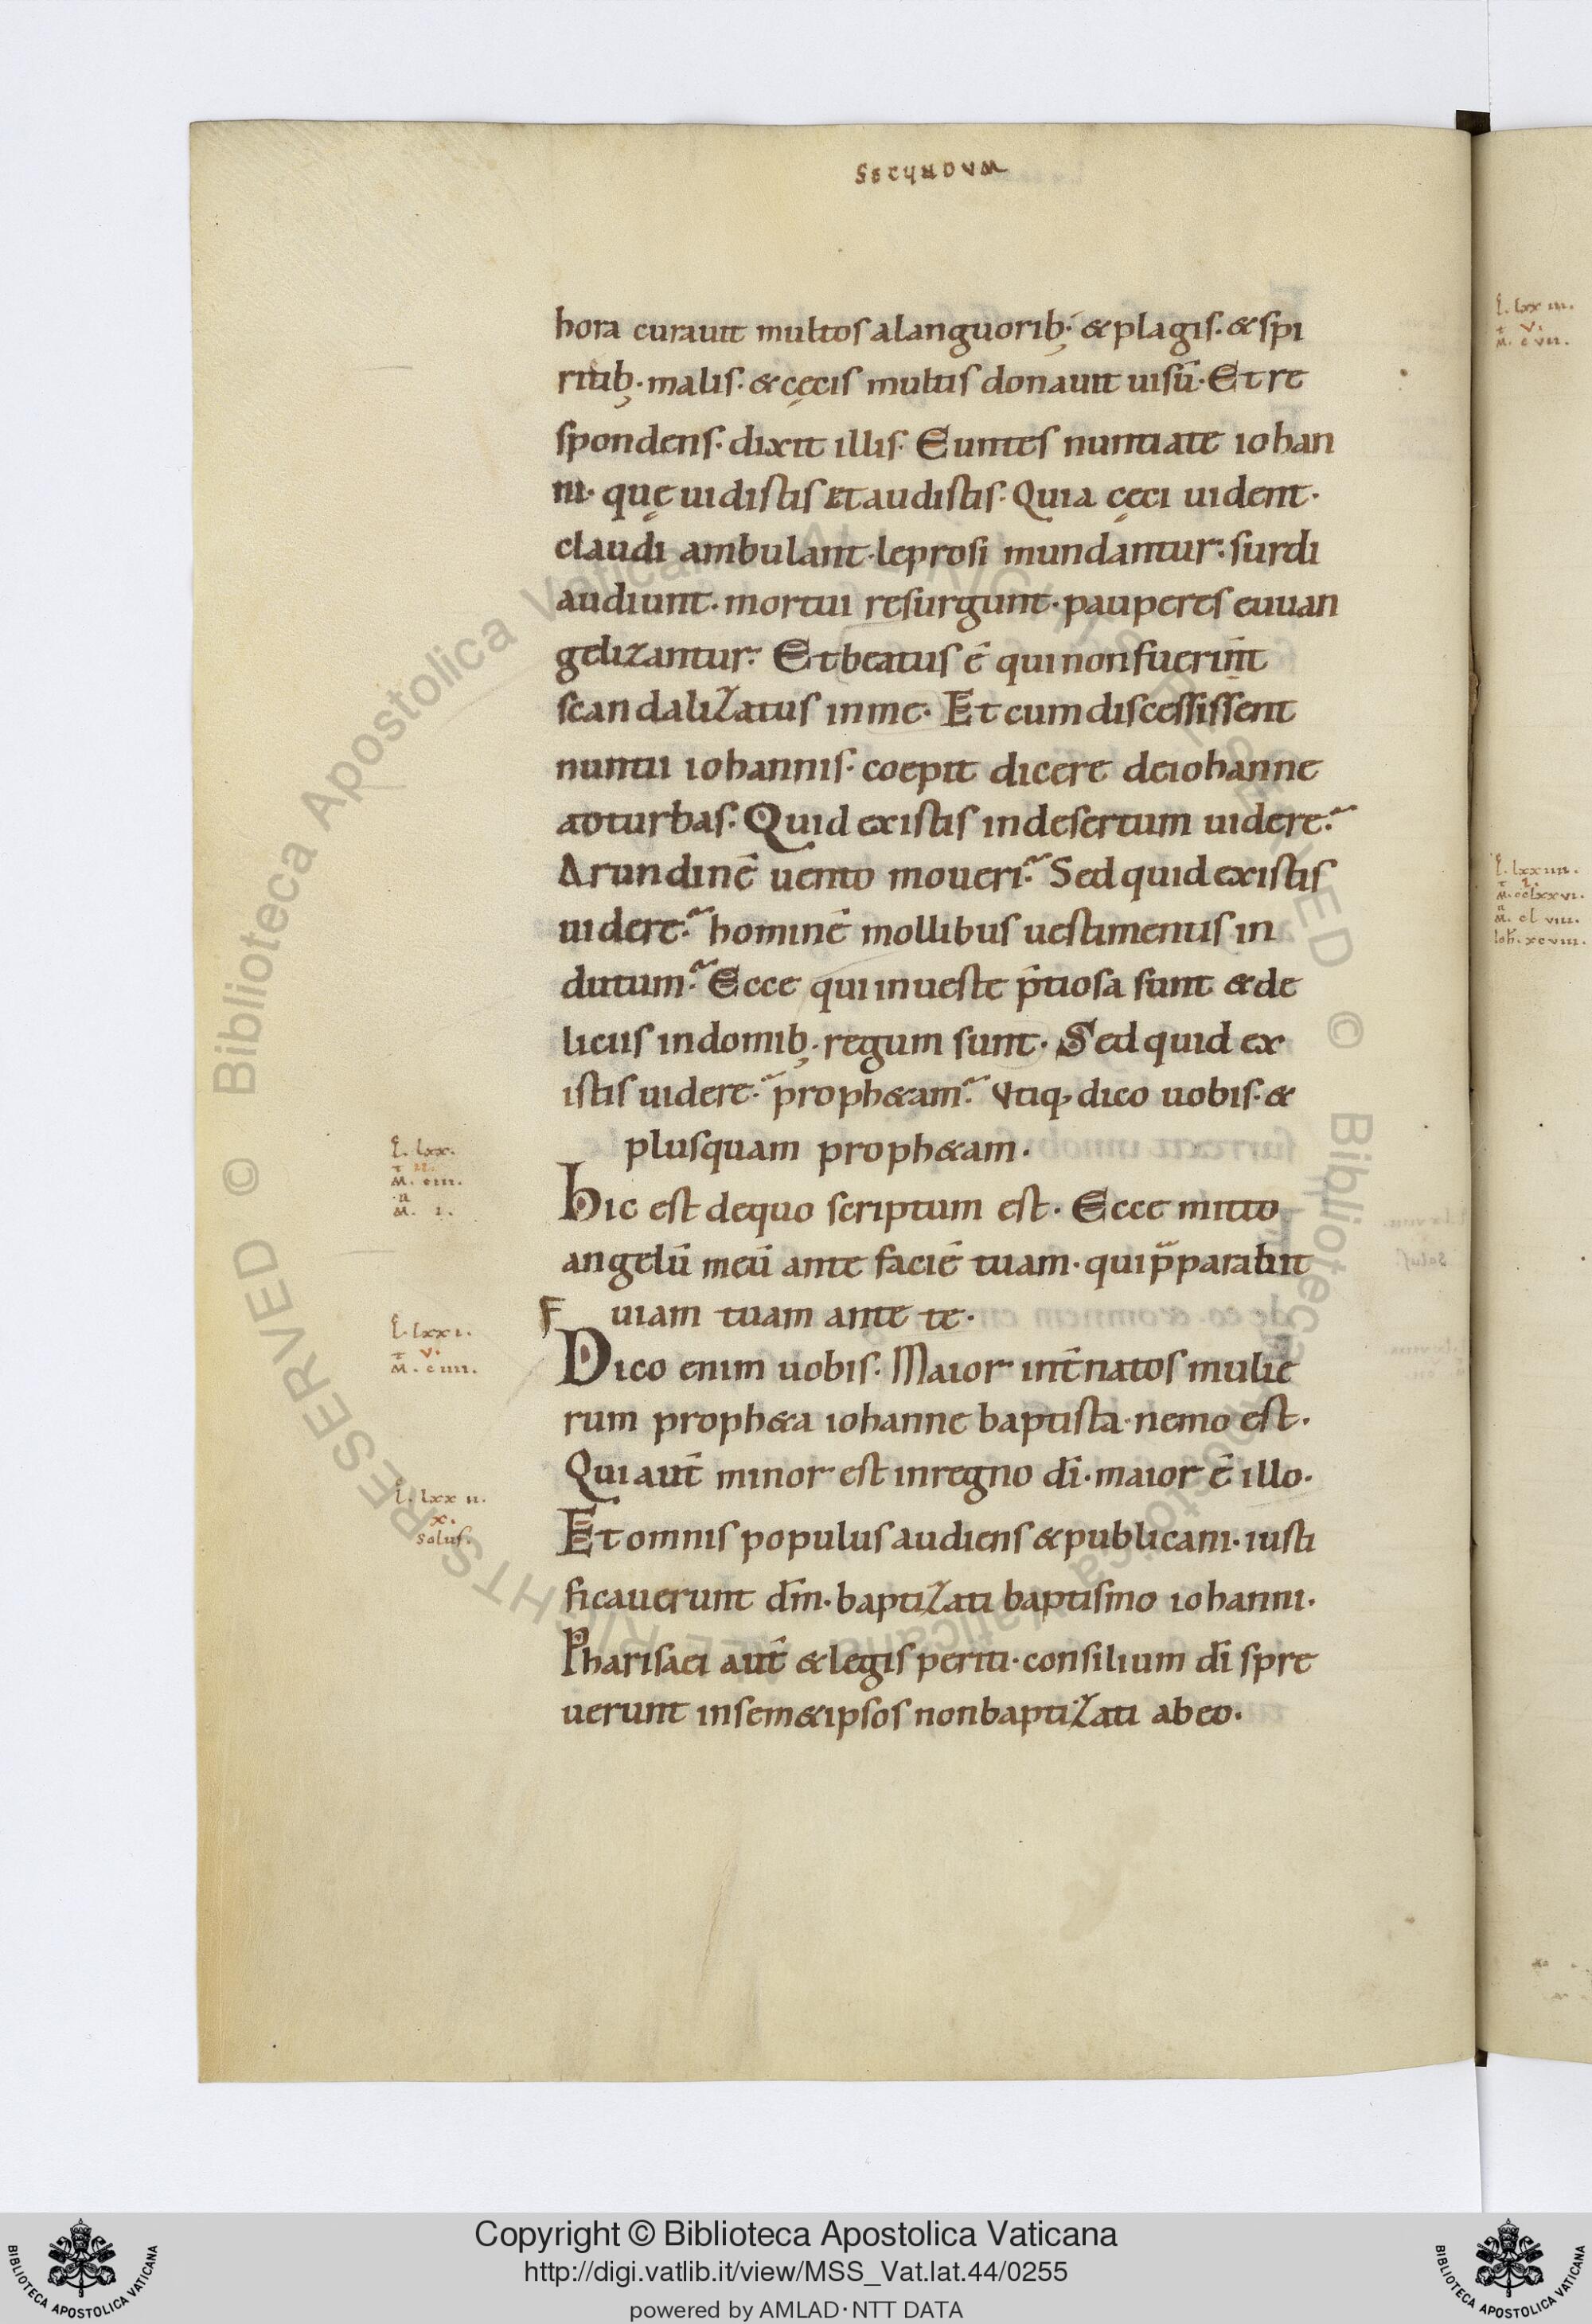 SECUNDUM
hora curauit multos alanguorib; &plagis. &spi
ritib;. malis. &cęcis multis donauit uisū. Et re
spondens. dixit illis. Euntes nuntiate iohan
ni. quę uidistis et audistis. Quia cęci uident.
claudi ambulant. leprosi mundantur. surdi
audiunt. mortui resurgunt. pauperes euuan
gelizantur. Et beatus ē qui non fuerint
scandalizatus in me. Et cum discessissent
nuntii iohannis. coepit dicere de iohanne
ad turbas. Quid existis in desertum uidere?
Arundinē uento moueri? Sed quid existis
uidere? hominē mollibus uestimentis in
dutum? Ecce qui in ueste p̄tiosa sunt & de
liciis in domib;. regum sunt. Sed quid ex
istis uidere? proph&am? Vtiq, dico uobis. &
plusquam proph&am.
L. lxx.
II.
M. ciii.
M. I.
Hic est de quo scriptum est. Ecce mitto
angelū meū ante faciē tuam. qui p̄parabit
F uiam tuam ante te.
L. lxxi.
V.
M. ciiii.
Dico enim uobis. Maior int̄ natos mulie
rum proph&a iohanne baptista. nemo est.
Qui aut̄ minor est in regno dī. maior ē illo.
L. lxxii.
X.
Solus.
Et omnis populus audiens & publicani. iusti
ficauerunt dm̄. baptizati baptismo iohanni.
Pharisaei aut̄ & legis periti. consilium dī spre
uerunt in sem&ipsos non baptizati ab eo.
L. lxxiii.
V.
M. cvii.
L. lxxiiii.
I.
M. cclxxvi.
M. clviii.
Ioh. xcviii.
© Biblioteca Apostolica Vaticana ALL RIGHTS RESERVED © Biblioteca Apostolica Vaticana ALL RIGHTS RESERVED
Copyright © Biblioteca Apostolica Vaticana
http://digi.vatlib.it/view/MSS_Vat.lat.44/0255
powered by AMLAD·NTT DATA
BIBLIOTECA APOSTOLICA VATICANA
BIBLIOTECA APOSTOLICA VATICANA